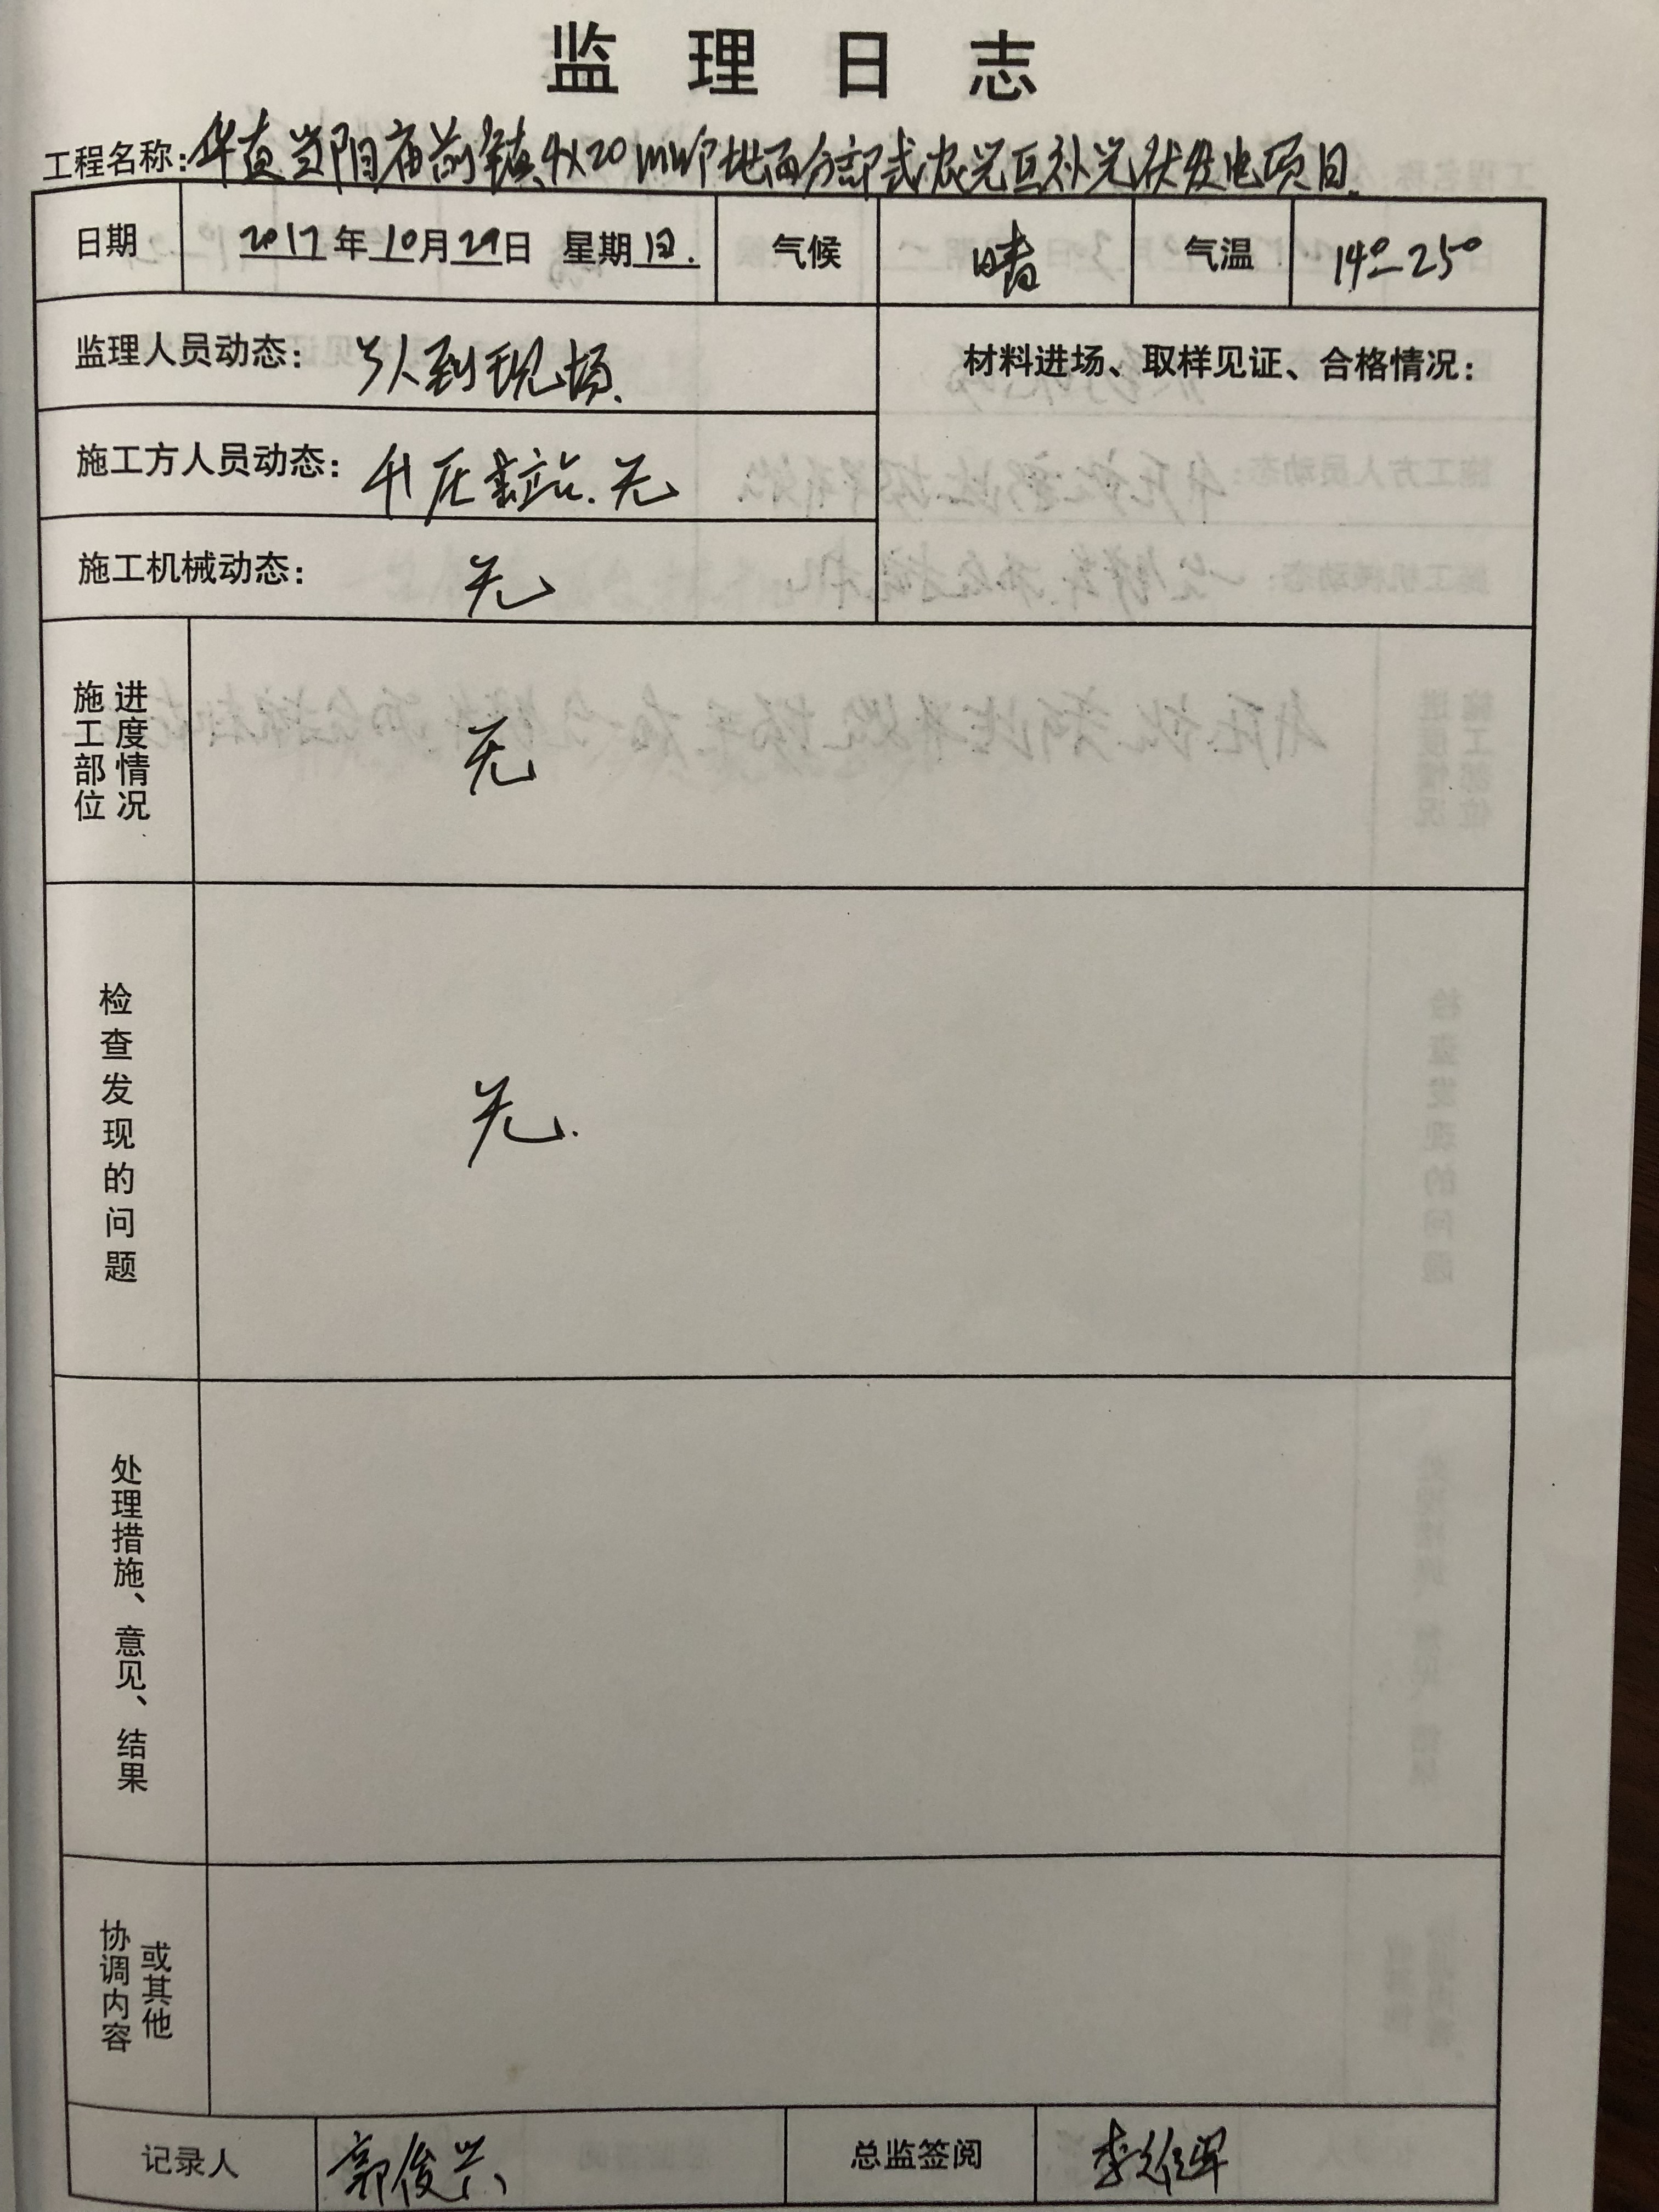 监理日志
工程名称:华夏当阳庙前镇4x20MWP地面分部式农光互补光伏发电项目.
日期 2017年10月29日 星期日. 气候 晴 气温 14°-25°
监理人员动态: 人到现场. 材料进场、取样见证、合格情况:
施工方人员动态: 升压站.无
施工机械动态: 无
施工部位进度情况 无
检查发现的问题 无.
处理措施、意见、结果
协调内容或其他
记录人 郭俊兴 总监签阅